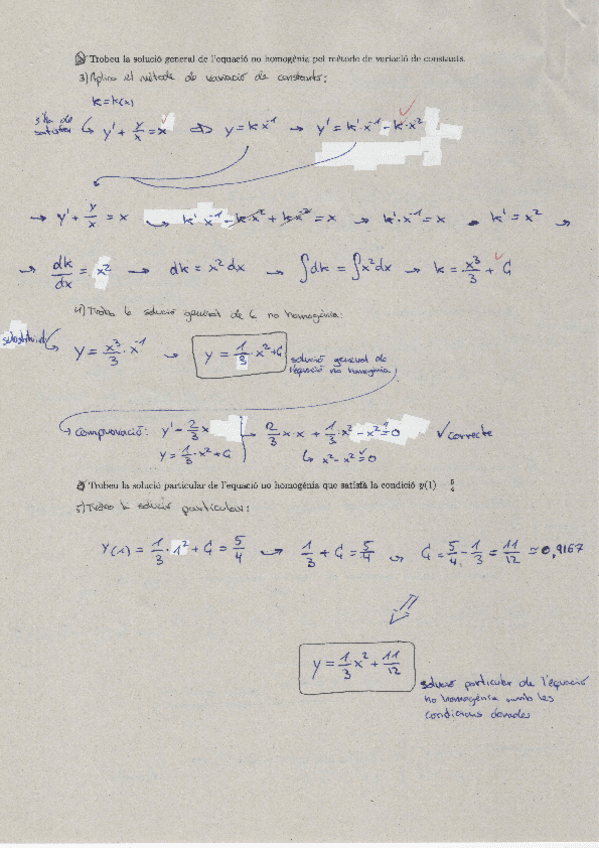 Trobeu la solució general de l'equació no homogènia pel mètode de variació de constants.
3) Aplico el mètode de variació de constants:
k=k(x)
s'ha de satisfer ↳ y' + y/x = x ⇒ y = k x⁻¹ → y' = k'·x⁻¹ - k·x⁻²
→ y' + y/x = x → k'·x⁻¹ - k·x⁻² + k·x⁻² = x → k'·x⁻¹ = x → k' = x² →
→ dk/dx = x² → dk = x² dx → ∫dk = ∫x² dx → k = x³/3 + C
4) Trobo la solució general de la no homogènia:
substituint → y = x³/3 · x⁻¹ → y = 1/3 · x² + C
solució general de
l'equació no homogènia
↳ comprovació: y' = 2/3 x → 2/3 x·x + 1/3 · x² - x² = 0 ✓ correcte
y = 1/3 · x² + C ↳ x² - x² = 0
Trobeu la solució particular de l'equació no homogènia que satisfà la condició y(1) =
5) Trobo la solució particular:
y(1) = 1/3 · 1² + C = 5/4 → 1/3 + C = 5/4 → C = 5/4 - 1/3 = 11/12 ≃ 0,9167
y = 1/3 x² + 11/12
solució particular de l'equació
no homogènia amb les
condicions donades